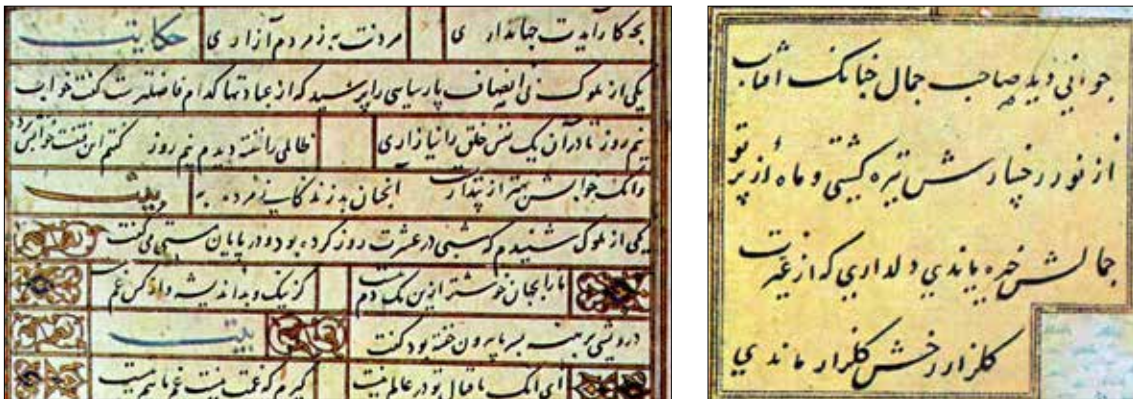 بچه کار آیدت جهانداری مردنت به ز مردم آزاری حکایت
یکی از ملوک بی انصاف پارسایی را پرسید که از عبادتها کدام فاضلترست گفت خواب
نیم روز تا در آن یک نفس خلق را نیازاری ظالمی را خفته دیدم نیم روز گفتم این فتنست خوابش برده
وانک خوابش بهتر از بیداریست آنچنان بد زندگانی مرده به
یکی از ملوک شنیدم که شبی در عشرت روز کرده بود و در پایان مستی می گفت
ما را بجهان خوشتر ازین یک دم نیست کز نیک و بد اندیشه و از کس غم نیست
درویشی برهنه بسرما برون خفته بود گفت بیت
ای آنک باقبال تو در عالم نیست گیرم که غمت نیست غم ما هم نیست
جوانی دید صاحب جمال چنانک افتاب
از نور رخسارش تیره گشتی و ماه از پرتو
جمالش خیره ماندی دلداری که از غیرت
گلزار رخش گلزار ماندی